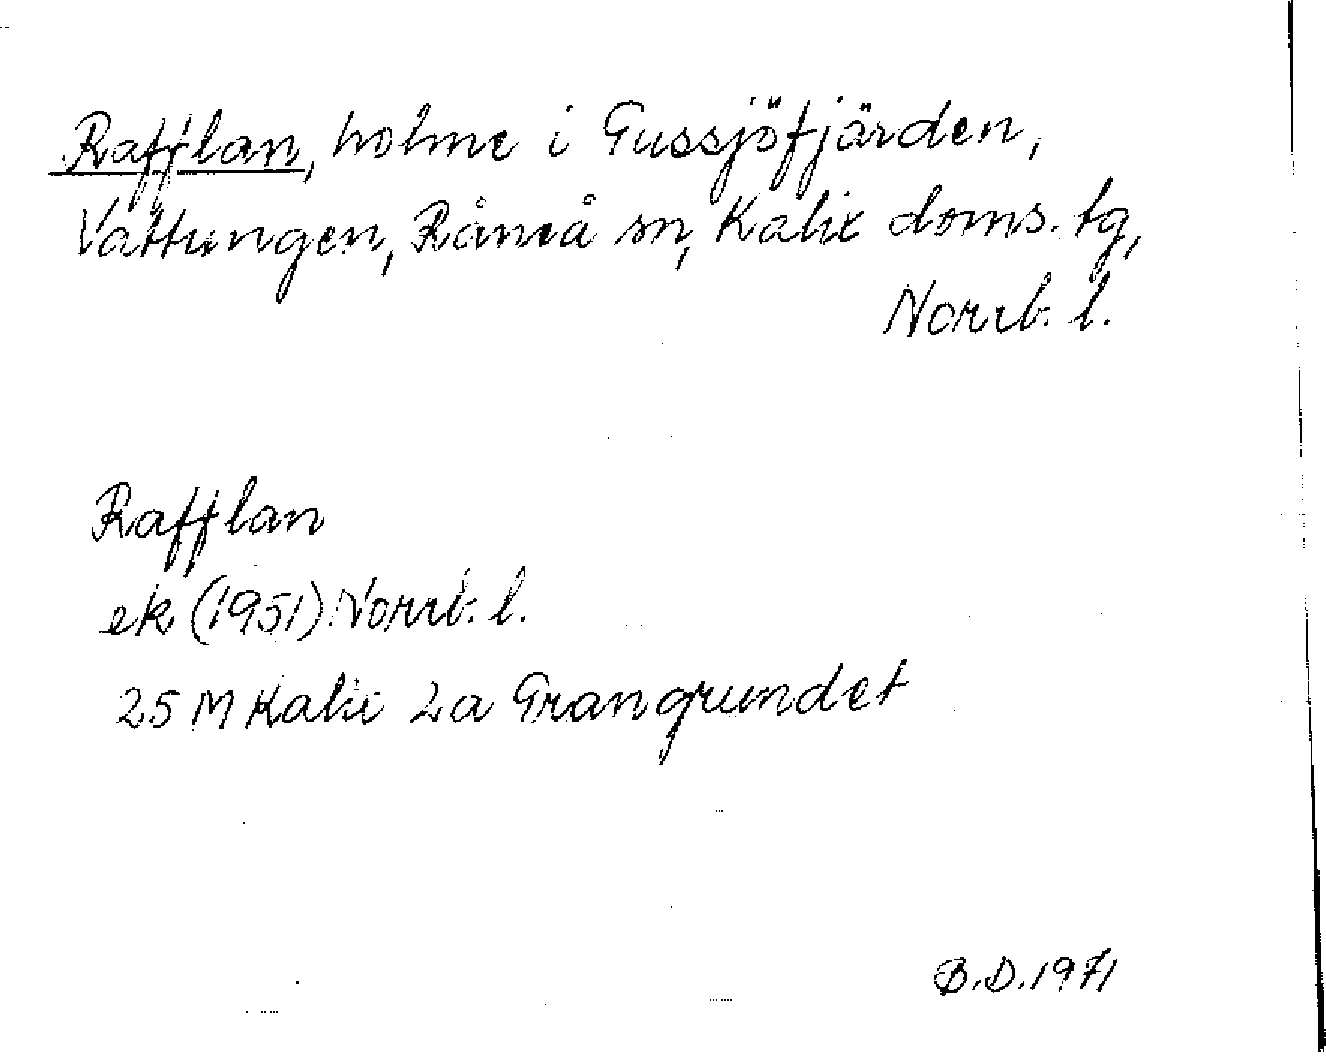 Rafflan, holme i Gussjöfjärden,
Vattungen, Råneå sn, Kalix doms. tg,
Norrb. l.
Rafflan
ek (1951) Norrb. l.
25 M Kalix 2a Grangrundet
B.D. 1971